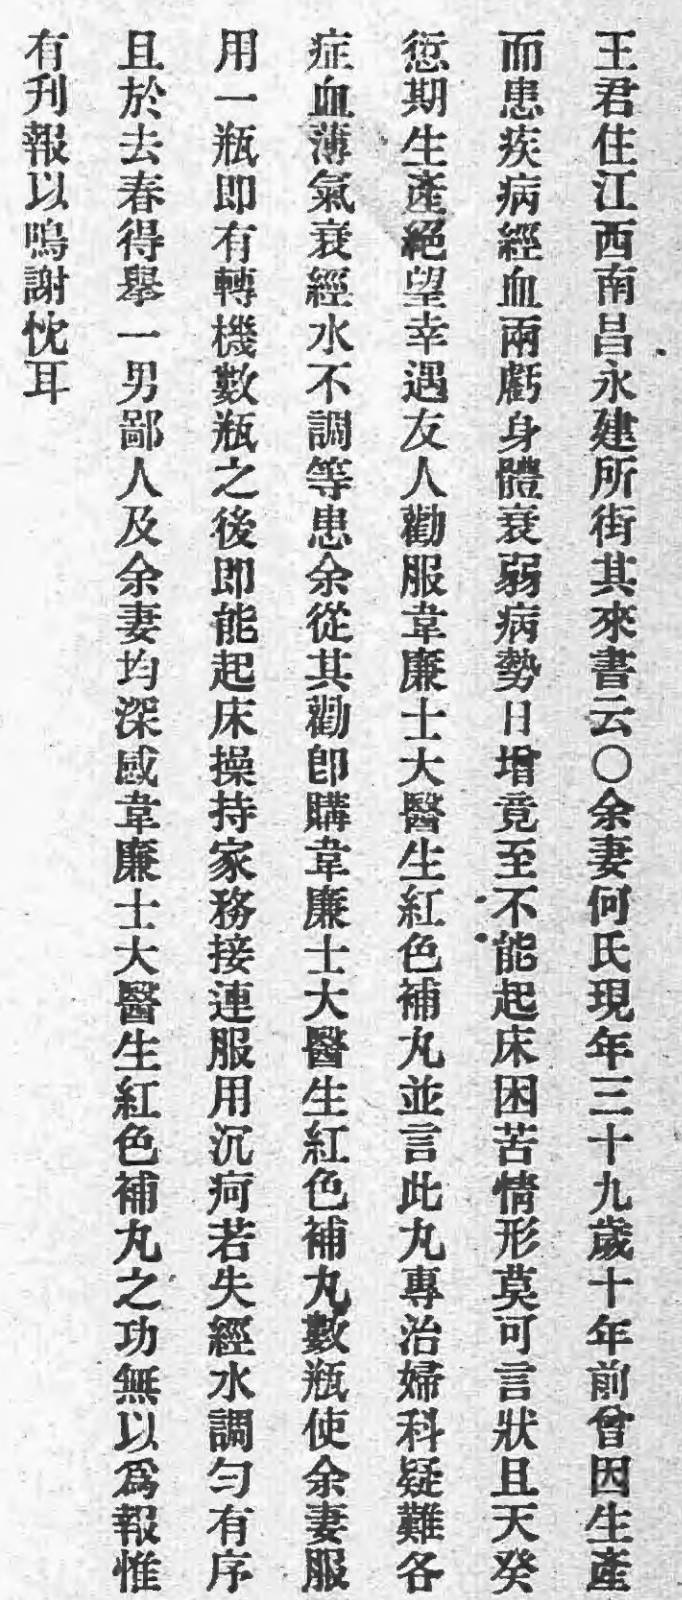 王君住江西南昌永建所街其來書云○余妻何氏現年三十九歲十年前曾因生產
而患疾病經血兩虧身體衰弱病勢日增竟至不能起床困苦情形莫可言狀且天癸
愆期生產絕望幸遇友人勸服韋廉士大醫生紅色補丸並言此丸專治婦科疑難各
症血薄氣衰經水不調等患余從其勸卽購韋廉士大醫生紅色補丸數瓶使余妻服
用一瓶即有轉機數瓶之後即能起床操持家務接連服用沉疴若失經水調勻有序
且於去春得舉一男鄙人及余妻均深感韋廉士大醫生紅色補丸之功無以爲報惟
有刋報以鳴謝忱耳